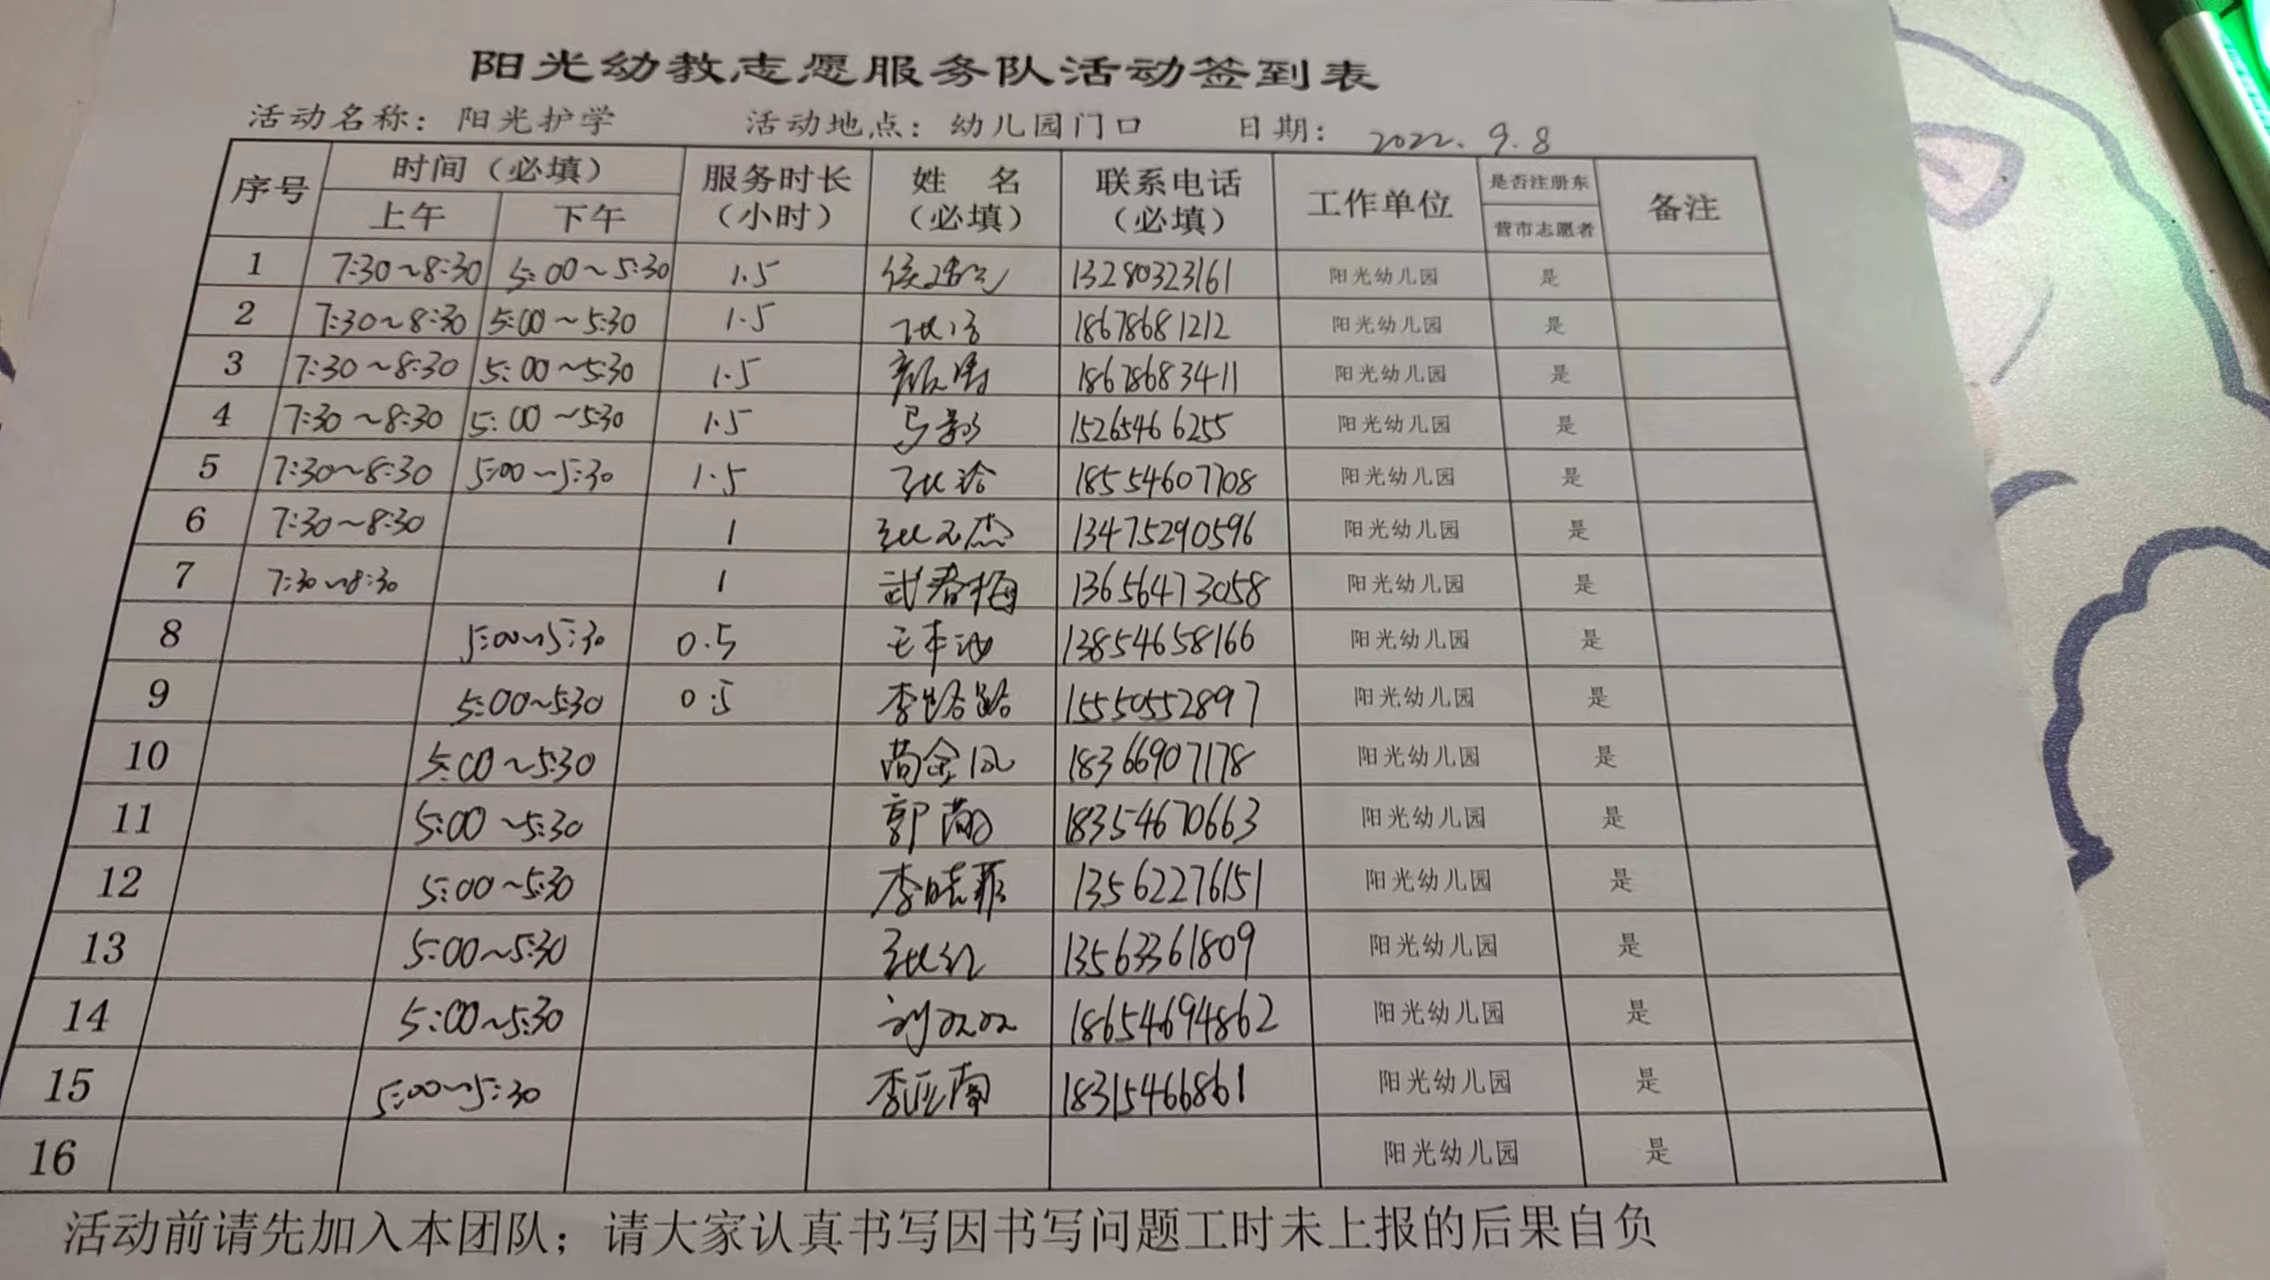 阳光幼教志愿服务队活动签到表
活动名称：阳光护学 活动地点：幼儿园门口 日期：2022.9.8
序号 时间（必填） 服务时长（小时） 姓 名（必填） 联系电话（必填） 工作单位 是否注册东营市志愿者 备注
上午 下午
1 7:30～8:30 5:00～5:30 1.5 13280323161 阳光幼儿园 是
2 7:30～8:30 5:00～5:30 1.5 18678681212 阳光幼儿园 是
3 7:30～8:30 5:00～5:30 1.5 18678683411 阳光幼儿园 是
4 7:30～8:30 5:00～5:30 1.5 马 15265466255 阳光幼儿园 是
5 7:30～8:30 5:00～5:30 1.5 张 18554607708 阳光幼儿园 是
6 7:30～8:30 1 张 杰 13475290596 阳光幼儿园 是
7 7:30～8:30 1 武春梅 13656473058 阳光幼儿园 是
8 5:00～5:30 0.5 13854658166 阳光幼儿园 是
9 5:00～5:30 0.5 李路路 15550552897 阳光幼儿园 是
10 5:00～5:30 尚金凤 18366907178 阳光幼儿园 是
11 5:00～5:30 郭 18354670663 阳光幼儿园 是
12 5:00～5:30 李晓菲 13562276151 阳光幼儿园 是
13 5:00～5:30 张红 13563361809 阳光幼儿园 是
14 5:00～5:30 刘双双 18654694862 阳光幼儿园 是
15 5:00～5:30 李亚南 18315466861 阳光幼儿园 是
16 阳光幼儿园 是
活动前请先加入本团队；请大家认真书写因书写问题工时未上报的后果自负